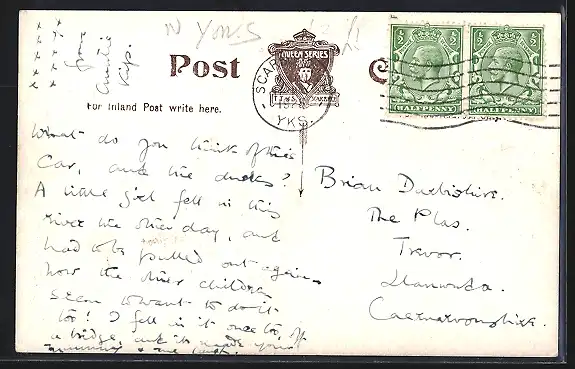 N Yorks
x x x x x x x x
from
Auntie
Kip.
Post C
QUEEN SERIES
T.T.&S. MARK
For Inland Post write here.
SCAR
YKS.
HALFPENNY HALFPENNY
What do you think of this
car, and the ducks?
A little girl fell in this
river the other day, and
had to be pulled out again
now the other children
seem to want to do it
too! I fell in it once too, off
a bridge, and it made your
mummy
Brian Darbishire.
The Plas.
Trevor.
Llanwnda.
Caernarvonshire.